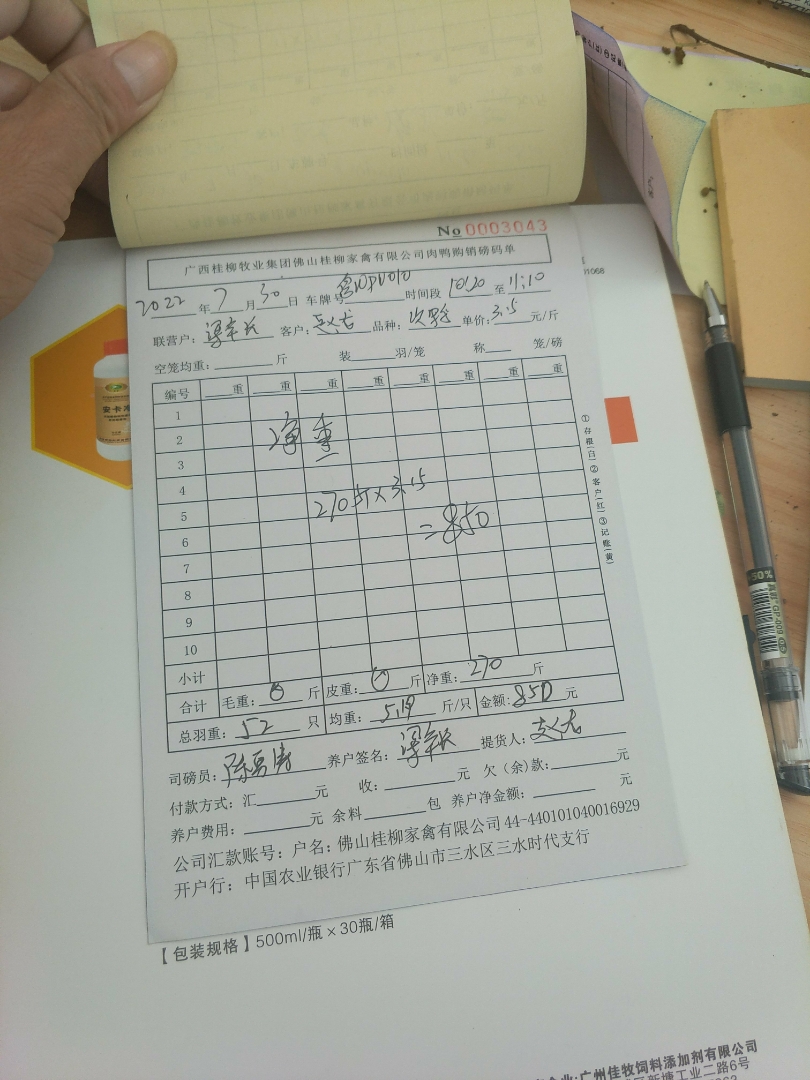 No 0003043
广西桂柳牧业集团佛山桂柳家禽有限公司肉鸭购销磅码单
2022 年 7 月 30 日 车牌号 时间段 10:20 至 11:10
联营户: 客户: 品种: 单价: 3.15 元/斤
空笼均重: 斤 装 羽/笼 称 笼/磅
编号 重 重 重 重 重 重 重 重
1
2 净重
3
4
5 270斤×3.15
6 =850
7
8
9
10
小计
合计 毛重: 0 斤 皮重: 0 斤 净重: 270 斤
总羽重: 52 只 均重: 5.19 斤/只 金额: 850 元
司磅员: 养户签名: 提货人:
付款方式: 汇 元 收: 元 欠(余)款: 元
养户费用: 元 余料 包 养户净金额: 元
公司汇款账号: 户名: 佛山桂柳家禽有限公司 44-440101040016929
开户行: 中国农业银行广东省佛山市三水区三水时代支行
①存根(白)②客户(红)③记账(黄)
【包装规格】500ml/瓶×30瓶/箱
:广州佳牧饲料添加剂有限公司
新塘工业二路6号
1068
安卡
50%
GP-009